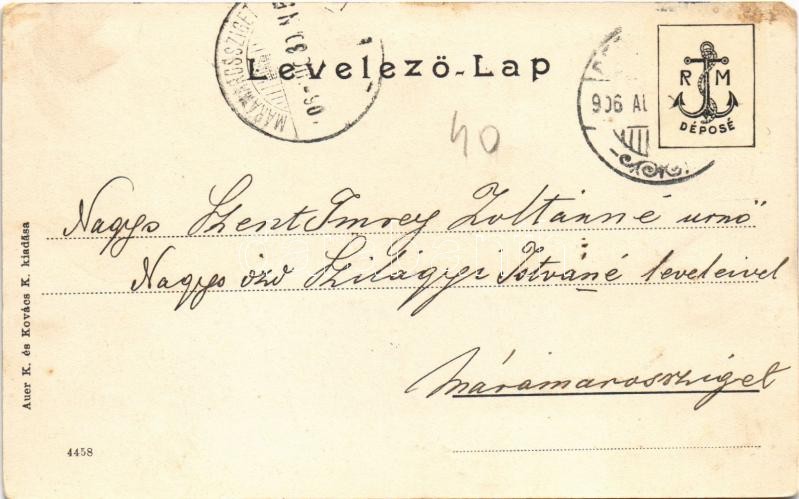 MÁRAMAROSSZIGET
Levelező-Lap
906 AU
R M
DÉPOSÉ
40
Nagys Szent Imrey Zoltánné urnő
Nagys özv Szilágyi Istváné leveleivel
Máramarossziget
Auer K. és Kovács K. kiadása
4458